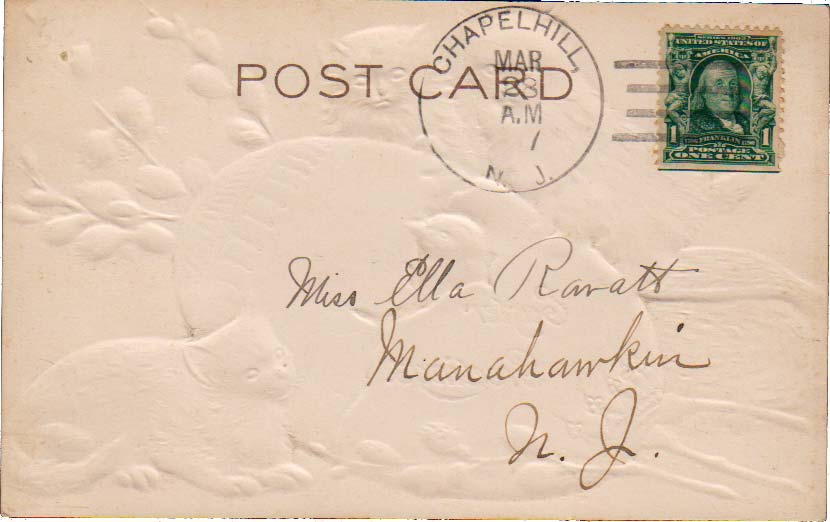 POST CARD
CHAPELHILL,
MAR
28
A.M
7
N. J.
SERIES 1902
UNITED STATES OF
AMERICA
1 1
FRANKLIN
POSTAGE
ONE CENT
Miss Ella Ravatt
Manahawkin
N. J.